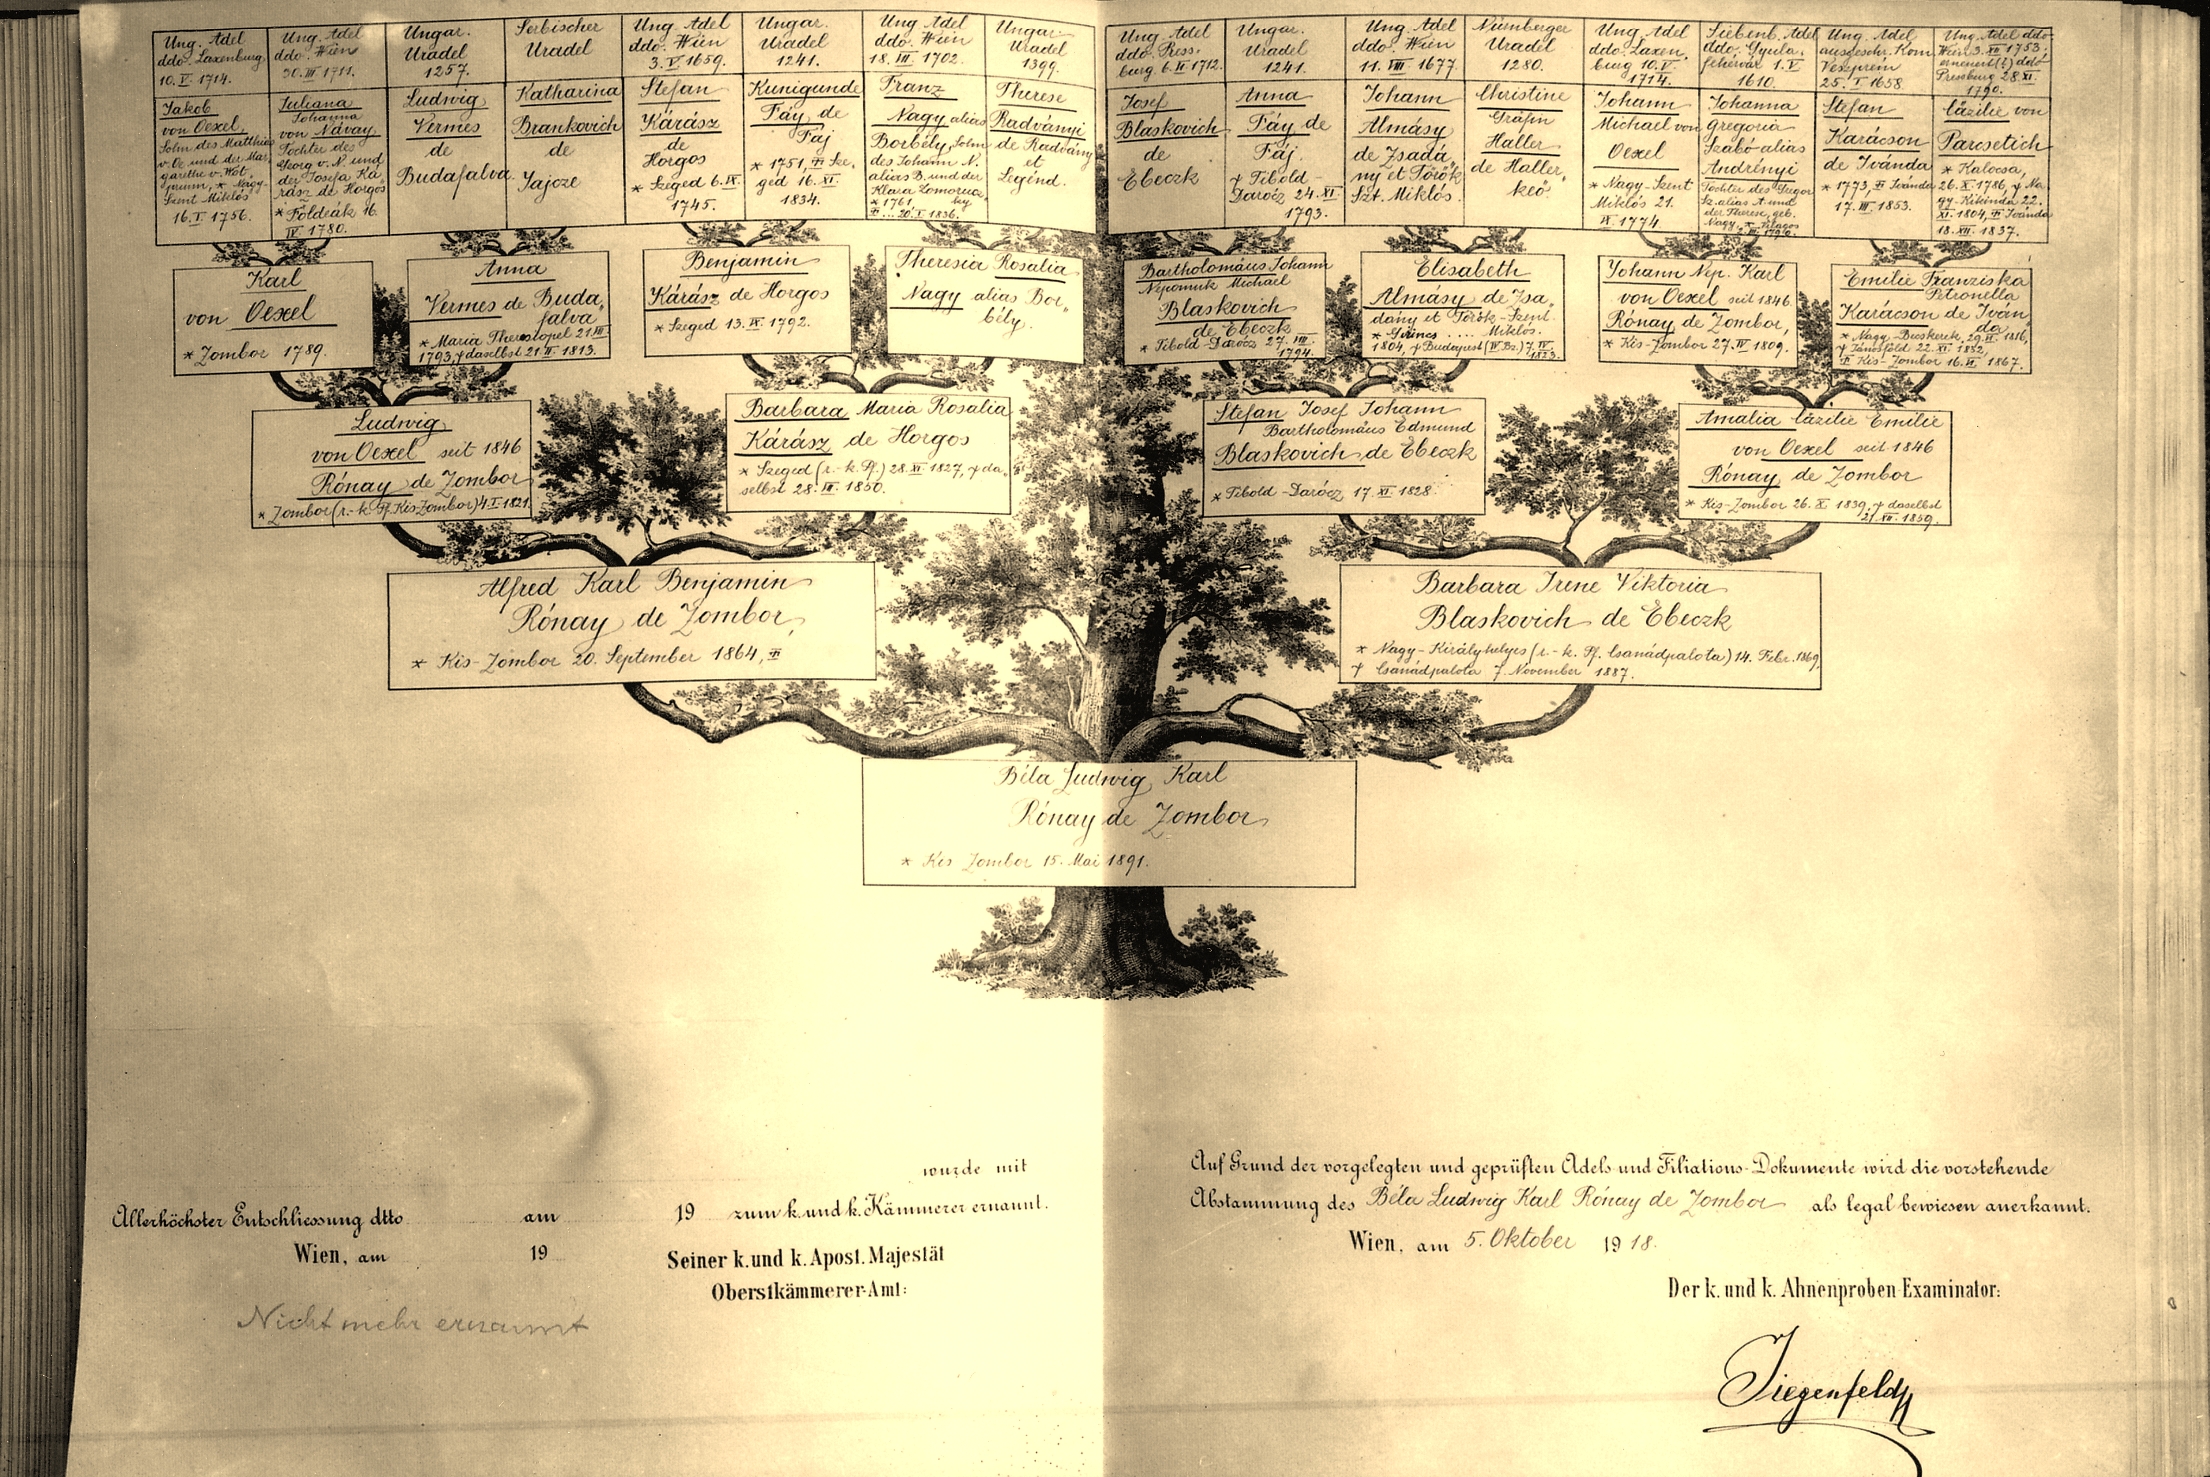 Ung. Adel
ddo. Laxenburg
10. V. 1714.
Ung. Adel
ddo. Wien
30. III. 1711.
Ungar.
Uradel
1257.
Serbischer
Uradel
Ung. Adel
ddo. Wien
3. V. 1659.
Ungar.
Uradel
1241.
Ung. Adel
ddo. Wien
18. III. 1702.
Ungar.
Uradel
1399.
Ung. Adel
ddo. Press-
burg 6. II. 1712.
Ungar.
Uradel
1241.
Ung. Adel
ddo. Wien
11. VIII 1677
Nürnberger
Uradel
1280.
Ung. Adel
ddo. Laxen,
burg 10. V.
1714.
Siebenb. Adel
ddo. Gyula,
fehérvár 1. V
1610.
Ung. Adel
ausgeschr. Kom.
Veszprém
25. I 1658.
Ung. Adel ddo.
Wien 3. XII 1753,
erneuert(?) ddo
Pressburg 28. XI.
1790.
Jakob
von Oexel,
Sohn des Matthias
v. Oe und der Mar,
garethe v. Kot
* Nagy-
Szent Miklós
16. I. 1756.
Juliana
Johanna
von Návay.
Tochter des
Georg v. N. und
der Josefa Ká
rász de Horgos
* Földeák 16.
IV. 1780.
Ludwig
Vermes
de
Budafalva.
Katharina
Brankovich
de
Jajcze
Stefan
Kárász
de
Horgos
* Szeged 6. IX.
1745.
Kunigunde
Fáy de
Fáj
* 1751, Sze-
ged 16. XI.
1834.
Franz
Nagy alias
Borbély, Sohn
des Johann N.
alias B. und der
Klara
* 1761,
20. I 1836.
Therese
Radványi
de Radvány
et
Legénd.
Josef
Blaskovich
de
Ebeczk
Anna
Fáy de
Fáj.
† Tibold-
Darócz 24. XI.
1793.
Johann
Almásy
de Zsadá,
ny et Török
Szt. Miklós.
Christine
Gräfin
Haller
de Haller,
keö
Johann
Michael von
Oexel
* Nagy-Szent
Miklós 21.
IX. 1774.
Johanna
Gregoria
Szabó alias
Andrényi
Tochter des Gregor
Sz. alias A. und
der Therese, geb.
Nagy,
Stefan
Karácson
de Ivánda
* 1773, Ivánda
17. III. 1853.
Cäzilie von
Parcsetich
* Kalocsa,
26. X. 1786, † Na
gy-Kikinda 22.
XI. 1804, Ivánda
18. XII. 1837.
Karl
von Oexel
* Zombor 1789.
Anna
Vermes de Buda,
falva
* Maria Theresiopel 21. III
1793, † daselbst 21. II. 1813.
Benjamin
Kárász de Horgos
* Szeged 13. IX. 1792.
Theresia Rosalia
Nagy alias Bor,,
bély.
Bartholomäus Johann
Nepomuk Michael
Blaskovich
de Ebeczk
* Tibold-Darócz 27. VIII.
1794.
Elisabeth
Almásy de Zsa,
dány et Török-Szent
Miklós.
* Gyöngyös
1804, † Budapest (IV Bz.) 7. IV.
1823.
Johann Nep. Karl
von Oexel seit 1846
Rónay de Zombor,
* Kis-Zombor 27. IV 1809.
Emilie Franziska
Petronella
Karácson de Iván
da
* Nagy-Becskerek, 29. II. 1816,
† Jánosföld 22. XI. 1852,
Kis-Zombor 16. XI. 1867.
Ludwig
von Oexel seit 1846
Rónay de Zombor
* Zombor (r.-k. Pf. Kis-Zombor) 4. I. 1821.
Barbara Maria Rosalia
Kárász de Horgos
* Szeged (r.-k. Pf.) 28. XI. 1827, † da,
selbst 28. IX. 1850.
Stefan Josef Johann
Bartholomäus Edmund
Blaskovich de Ebeczk
* Tibold-Darócz 17. XI. 1828.
Amalia Cäzilie Emilie
von Oexel seit 1846
Rónay de Zombor
* Kis-Zombor 26. X. 1839, † daselbst
21. XII. 1859.
Alfred Karl Benjamin
Rónay de Zombor,
* Kis-Zombor 20. September 1864,
Barbara Irene Viktoria
Blaskovich de Ebeczk
* Nagy-Királyhelyes (r.-k. Pf. Csanádpalota) 14. Febr. 1869,
† Csanádpalota 7. November 1887.
Béla Ludwig Karl
Rónay de Zombor
* Kis Zombor 15. Mai 1891.
wurde mit
Allerhöchster Entschliessung dtto am 19 zum k. und k. Kämmerer ernannt.
Wien, am 19
Seiner k. und k. Apost. Majestät
Oberstkämmerer-Amt:
Nicht mehr ernannt
Auf Grund der vorgelegten und geprüften Adels und Filiations-Dokumente wird die vorstehende
Abstammung des Béla Ludwig Karl Rónay de Zombor als legal bewiesen anerkannt.
Wien, am 5. Oktober 1918.
Der k. und k. Ahnenproben-Examinator:
Ziegenfeld